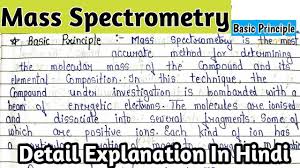 Mass Spectrometry
Basic Principle
* Basic Principle :- Mass spectrometry is the most
accurate method for determining
the molecular mass of the Compound and its
elemental Composition. In this technique, the
Compound under investigation is bombarded with a
beam of energetic electrons. The molecules are ionised
and dissociate into several fragments. Some of
which are positive ions. Each kind of ion has a
Detail Explanation In Hindi